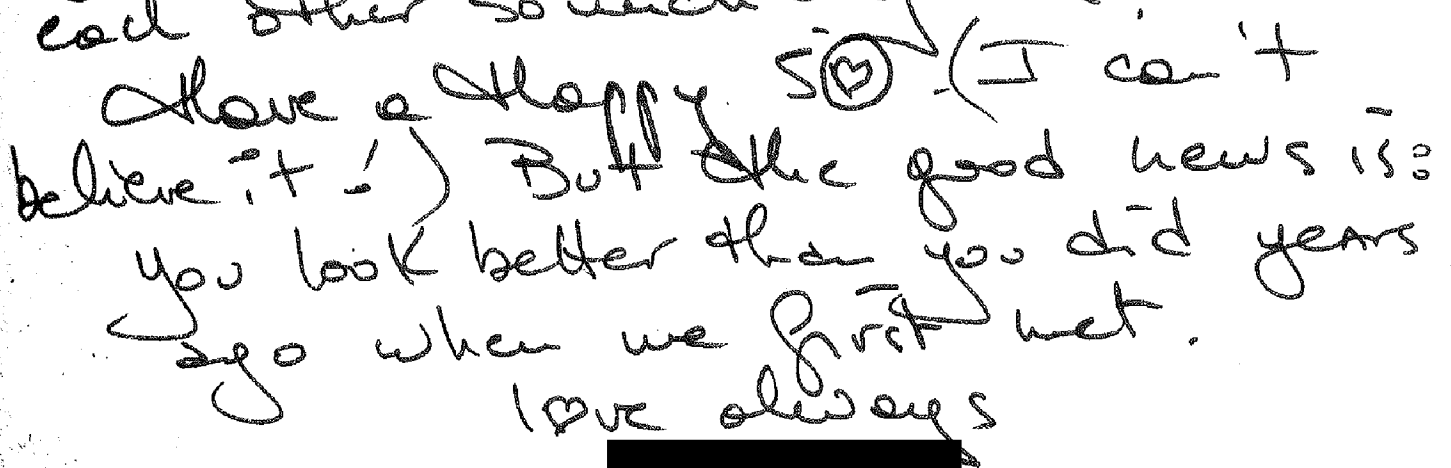 each other so much
Have a Happy 50 (I can't
believe it!) But the good news is:
you look better than you did years
ago when we first met.
love always